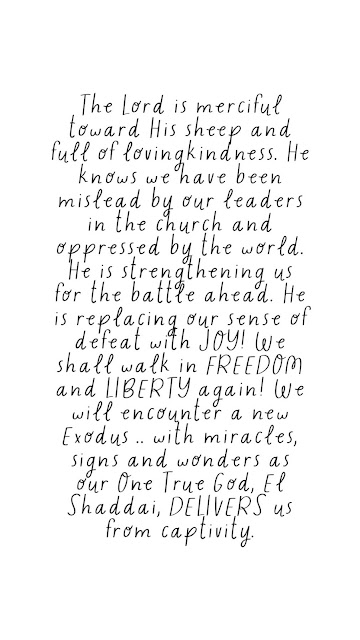 The Lord is merciful
toward His sheep and
full of lovingkindness. He
knows we have been
mislead by our leaders
in the church and
oppressed by the world.
He is strengthening us
for the battle ahead. He
is replacing our sense of
defeat with JOY! We
shall walk in FREEDOM
and LIBERTY again! We
will encounter a new
Exodus .. with miracles,
signs and wonders as
our One True God, El
Shaddai, DELIVERS us
from captivity.